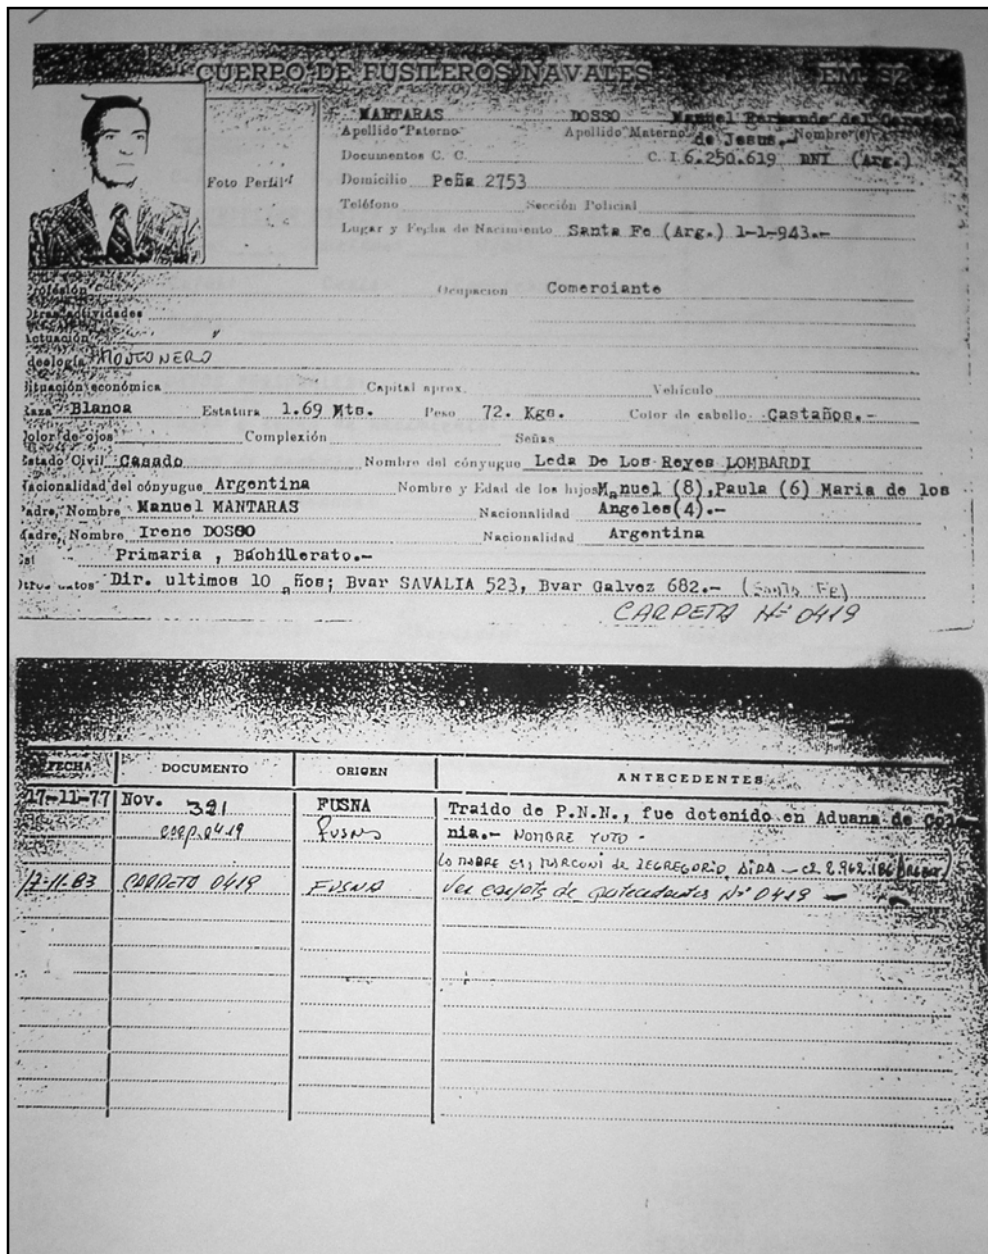 CUERPO DE FUSILEROS NAVALES EM. S2
MANTARAS DOSSO Manuel Fernando del Corazon
Apellido Paterno Apellido Materno de Jesus.- Nombre(s)
Documentos C. C. C. I 6.250.619 DNI (Arg.)
Foto Perfil
Domicilio Peña 2753
Teléfono Sección Policial
Lugar y Fecha de Nacimiento Santa Fe (Arg.) 1-1-943.-
Profesión Ocupacion Comerciante
Otras actividades
Actuación
Ideología MONTONERO
Situación económica Capital aprox. Vehículo
Raza Blanca Estatura 1.69 Mts. Peso 72. Kgs. Color de cabello Castaños.-
Color de ojos Complexión Señas
Estado Civil Casado Nombre del cónyugue Leda De Los Reyes LOMBARDI
Nacionalidad del cónyugue Argentina Nombre y Edad de los hijos Manuel (8), Paula (6) Maria de los
Padre, Nombre Manuel MANTARAS Nacionalidad Angeles(4).-
Madre, Nombre Irene DOSSO Nacionalidad Argentina
Primaria , Bachillerato.-
Otros datos Dir. ultimos 10 años; Bvar SAVALIA 523, Bvar Galvez 682.- (Santa Fe)
CARPETA Nº 0419
FECHA DOCUMENTO ORIGEN ANTECEDENTES
17-11-77 Nov. 391 FUSNA Traido de P.N.N., fue detenido en Aduana de Colo-
CARP. 0419 FUSNA nia.- NOMBRE YUTO -
LA MADRE ES, MARCONI de DEGREGORIO AIDA - CI 2.962.186
17-11-83 CARPETA 0419 FUSNA Ver carpeta de antecedentes Nº 0419 -